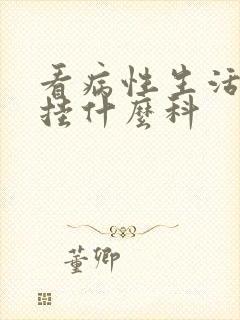 看病性生活
挂什麼科
董卿